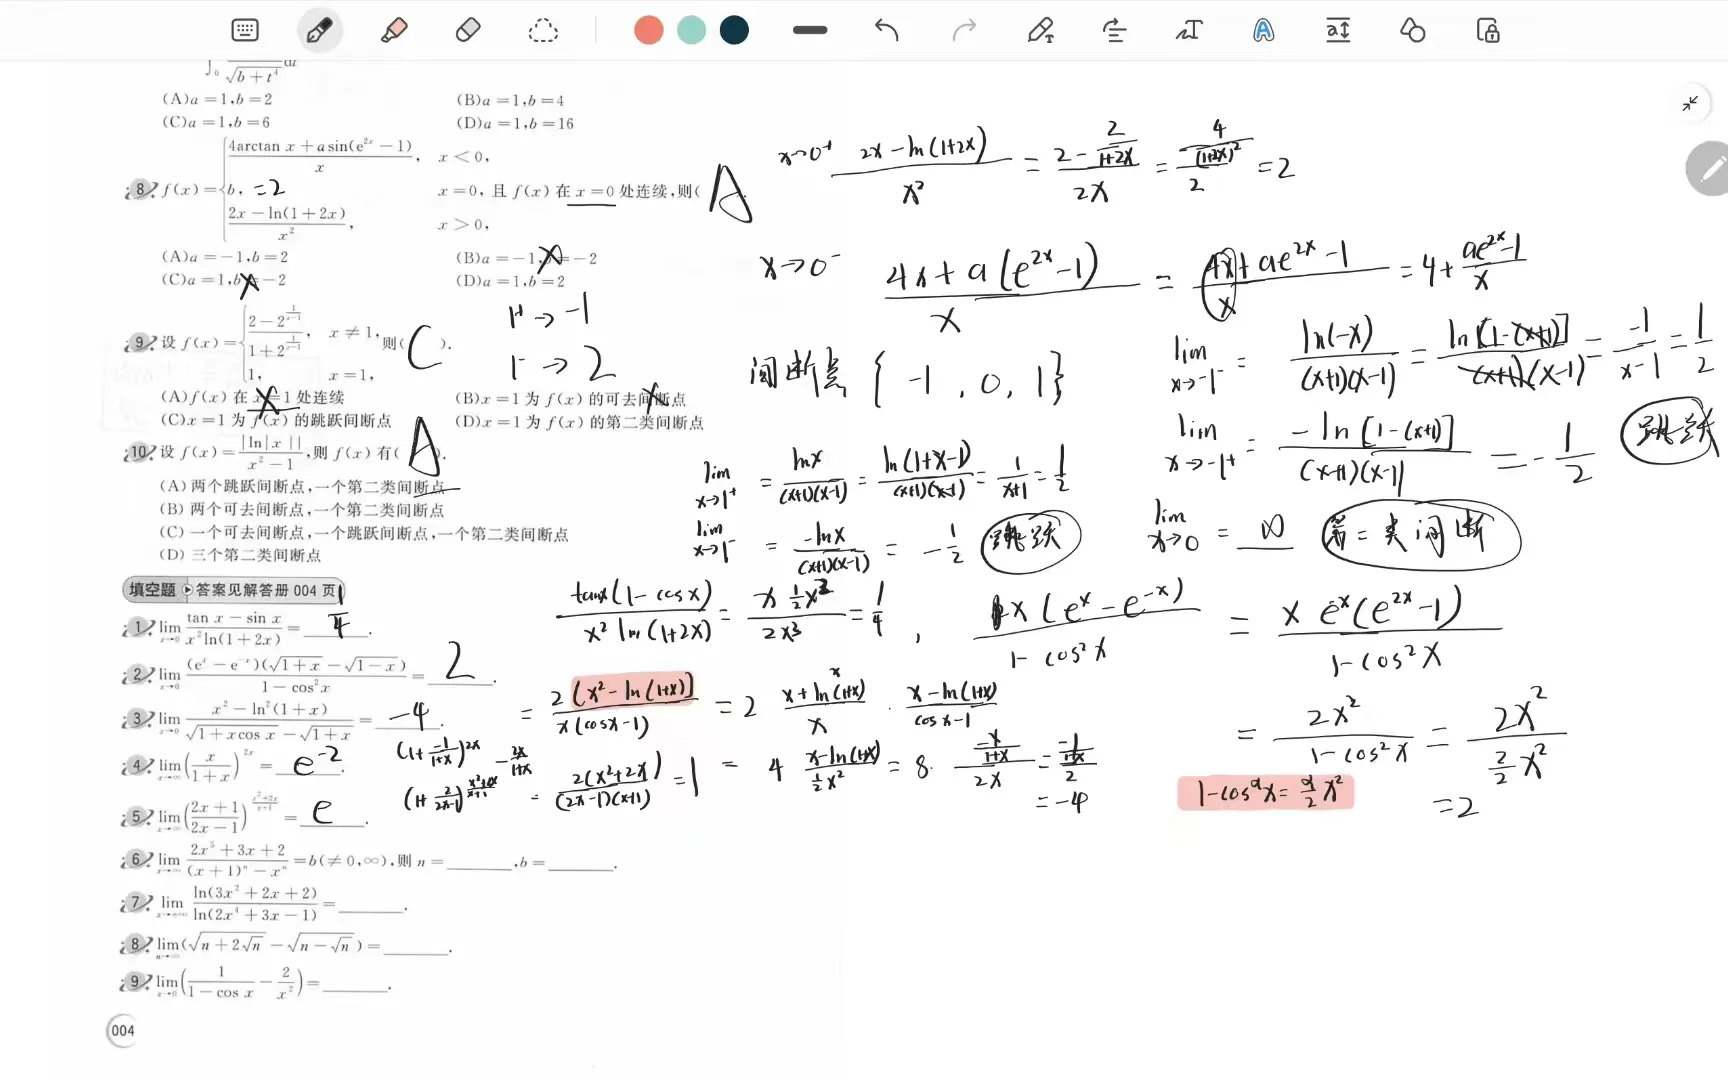 ∫₀ ———/√(b+t⁴) dt
(A)a=1,b=2 (B)a=1,b=4
(C)a=1,b=6 (D)a=1,b=16
8. f(x)={ (4arctan x+asin(e²ˣ−1))/x, x<0,
b, =2 x=0,且 f(x)在 x=0 处连续,则( A
(2x−ln(1+2x))/x², x>0,
(A)a=−1,b=2 (B)a=−1,b=−2
(C)a=1,b=−2 (D)a=1,b=2
9. 设 f(x)={ (2−2^(1/(x−1)))/(1+2^(1/(x−1))), x≠1, 则( C ).
1, x=1,
1⁺→−1
1⁻→2
(A)f(x)在 x=1 处连续 (B)x=1 为 f(x)的可去间断点
(C)x=1 为 f(x)的跳跃间断点 (D)x=1 为 f(x)的第二类间断点
10. 设 f(x)=|ln|x||/(x²−1),则 f(x)有( A ).
(A)两个跳跃间断点,一个第二类间断点
(B)两个可去间断点,一个第二类间断点
(C)一个可去间断点,一个跳跃间断点,一个第二类间断点
(D)三个第二类间断点
填空题 答案见解答册 004 页
1. lim x→0 (tan x−sin x)/(x²ln(1+2x))= 1/4 .
2. lim x→0 (eˣ−e⁻ˣ)(√(1+x)−√(1−x))/(1−cos²x)= 2 .
3. lim x→0 (x²−ln²(1+x))/(√(1+xcos x)−√(1+x))= −4 .
4. lim x→∞ (x/(1+x))^(2x)= e⁻² .
5. lim x→∞ ((2x+1)/(2x−1))^((x²+2x)/(x+1))= e .
6. lim x→∞ (2x⁵+3x+2)/((x+1)ⁿ−xⁿ)=b(≠0,∞),则 n=______,b=______.
7. lim x→+∞ ln(3x²+2x+2)/ln(2x⁴+3x−1)=______.
8. lim n→∞ (√(n+2√n)−√(n−√n))=______.
9. lim x→0 (1/(1−cos x)−2/x²)=______.
004
x→0⁺ (2x−ln(1+2x))/x² = (2−2/(1+2x))/2x = (4/(1+2x)²)/2 =2
x→0⁻ (4x+a(e²ˣ−1))/x = (4x+ae²ˣ−1)/x =4+(ae²ˣ−1)/x
间断点{−1,0,1}
lim x→−1⁻ = ln(−x)/((x+1)(x−1)) = ln[1−(x+1)]/((x+1)(x−1)) = −1/(x−1) = 1/2
lim x→−1⁺ = −ln[1−(x+1)]/((x+1)(x−1)) = −1/2 跳跃
lim x→1⁺ = lnx/((x+1)(x−1)) = ln(1+x−1)/((x+1)(x−1)) = 1/(x+1) = 1/2
lim x→1⁻ = −lnx/((x+1)(x−1)) = −1/2 跳跃
lim x→0 = ∞ 第二类间断
tanx(1−cosx)/(x² ln(1+2x)) = (x ½x²)/2x³ = 1/4 ,
x(eˣ−e⁻ˣ)/(1−cos²x) = x e⁻ˣ(e²ˣ−1)/(1−cos²x)
= 2x²/(1−cos²x) = 2x²/((2/2)x²)
=2
1−cosᵅx=(α/2)x²
= 2[x²−ln(1+x)]/(x(cosx−1)) = 2 (x+ln(1+x))/x · (x−ln(1+x))/(cosx−1)
= 4 (x−ln(1+x))/(½x²) = 8· (−x/(1+x))/2x = (−1/(1+x))/2
=−4
(1+(−1)/(1+x))^(2x) −2x/(1+x)
(1+2/(2x−1))^((x²+2x)/(x+1)) = 2(x²+2x)/((2x−1)(x+1)) =1